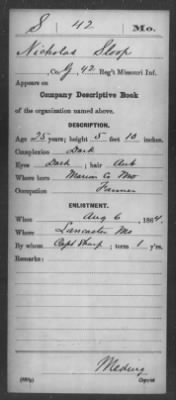 S 42 Mo.
Nicholas Sloop
, Co. G, 42 Reg't Missouri Inf.
Appears on
Company Descriptive Book
of the organization named above.
DESCRIPTION.
Age 25 years; height 5 feet 10 inches.
Complexion Dark
Eyes Dark; hair Aub
Where born Marion Co Mo
Occupation Farmer
ENLISTMENT.
When Aug 6, 1864.
Where Lancaster Mo
By whom Capt Sharp; term 1 y'rs.
Remarks:
Copyist.